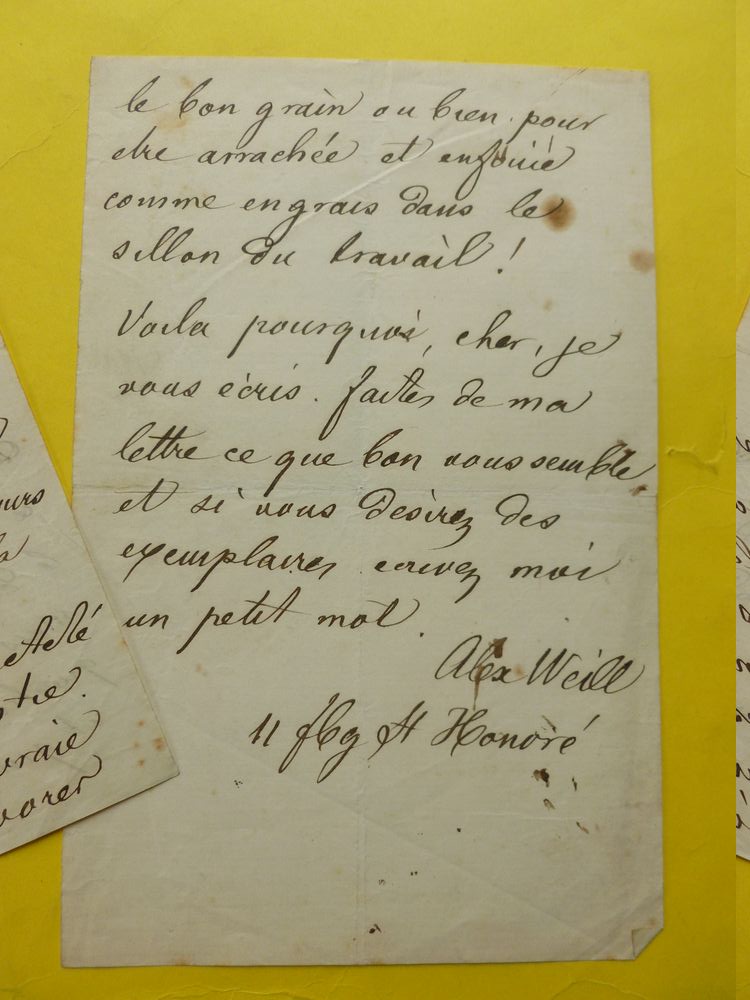 le bon grain ou bien pour
etre arrachée et enfouie
comme engrais dans le
sillon du travail !
Voila pourquoi, cher, je
vous écris. faites de ma
lettre ce que bon vous semble
et si vous désirez des
exemplaires ecrivez moi
un petit mot.
Alex Weill
11 fbg St Honoré